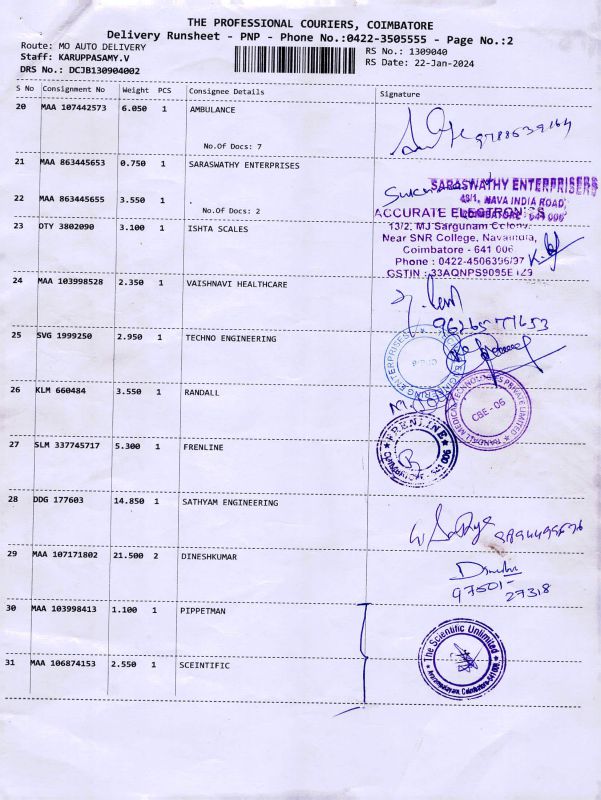 THE PROFESSIONAL COURIERS, COIMBATORE
Delivery Runsheet - PNP - Phone No.:0422-3505555 - Page No.:2
Route: MO AUTO DELIVERY
RS No.: 1309040
Staff: KARUPPASAMY.V
RS Date: 22-Jan-2024
DRS No.: DCJB130904002
S No Consignment No Weight PCS Consignee Details Signature
20 MAA 107442573 6.050 1 AMBULANCE
No.Of Docs: 7
9788639164
21 MAA 863445653 0.750 1 SARASWATHY ENTERPRISES
SARASWATHY ENTERPRISERS
49/1, NAVA INDIA ROAD,
COIMBATORE - 641 006
22 MAA 863445655 3.550 1 .
No.Of Docs: 2
ACCURATE ELECTRONICS
23 DTY 3802090 3.100 1 ISHTA SCALES
13/2, MJ Sargunam Colony,
Near SNR College, Navaindia,
Coimbatore - 641 006
Phone : 0422-4506396/97
GSTIN : 33AQNPS9095E1Z9
24 MAA 103998528 2.350 1 VAISHNAVI HEALTHCARE
9626577653
25 SVG 1999250 2.950 1 TECHNO ENGINEERING
ENTERPRISES
26 KLM 660484 3.550 1 RANDALL
RANDALL MEDICAL TECHNOLOGIES PRIVATE LIMITED
CBE - 06
27 SLM 337745717 5.300 1 FRENLINE
FRENLINE
641 006
28 DDG 177603 14.850 1 SATHYAM ENGINEERING
29 MAA 107171802 21.500 2 DINESHKUMAR
Dinesh
97501-
27318
30 MAA 103998413 1.100 1 PIPPETMAN
The Scientific Unlimited
31 MAA 106874153 2.550 1 SCEINTIFIC